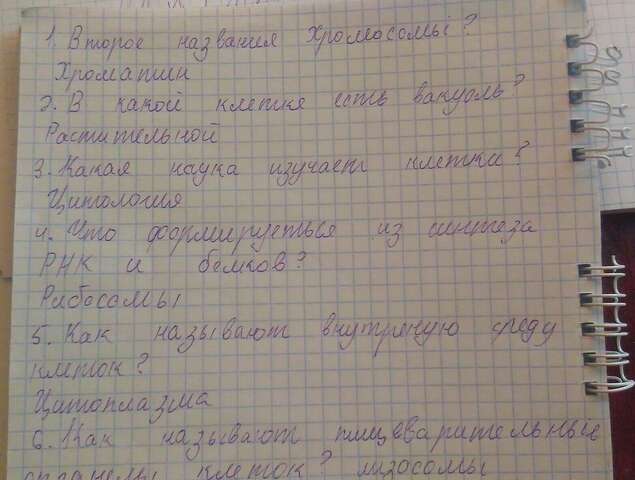 1. Второе названия хромосомы?
Хроматин
2. В какой клетке есть вакуоль?
Растительной
3. Какая наука изучает клетки?
Цитология
4. Что формируеться из синтеза
РНК и белков?
Рибосомы
5. Как называют внутреную среду
клеток?
Цитоплазма
6. Как называют пищеварительные
органелы клеток? лизосомы